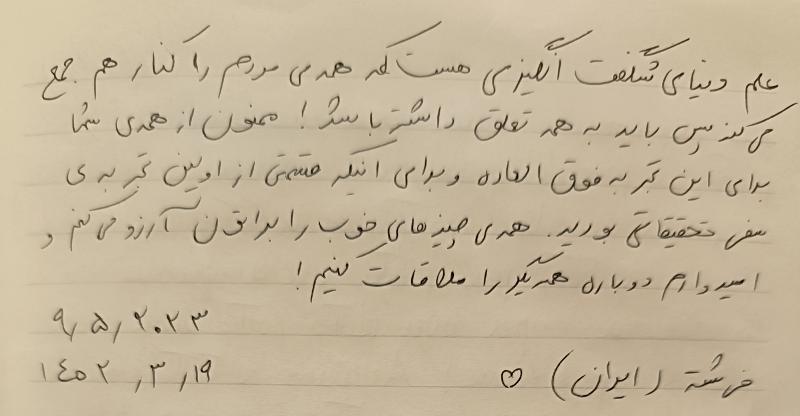 علم دنیای شگفت انگیزی هست که همه‌ی مردم را کنار هم جمع
می‌کند پس باید به همه تعلق داشته باشد! ممنون از همه‌ی شما
برای این تجربه فوق العاده و برای اینکه قسمتی از اولین تجربه‌ی
سفر تحقیقاتی بودید. همه‌ی چیزهای خوب را براتون آرزو می‌کنم و
امیدوارم دوباره همدیگر را ملاقات کنیم!
۹٫۵٫۲۰۲۳
۱۴۰۲٫۳٫۱۹
فرشته (ایران) ♡